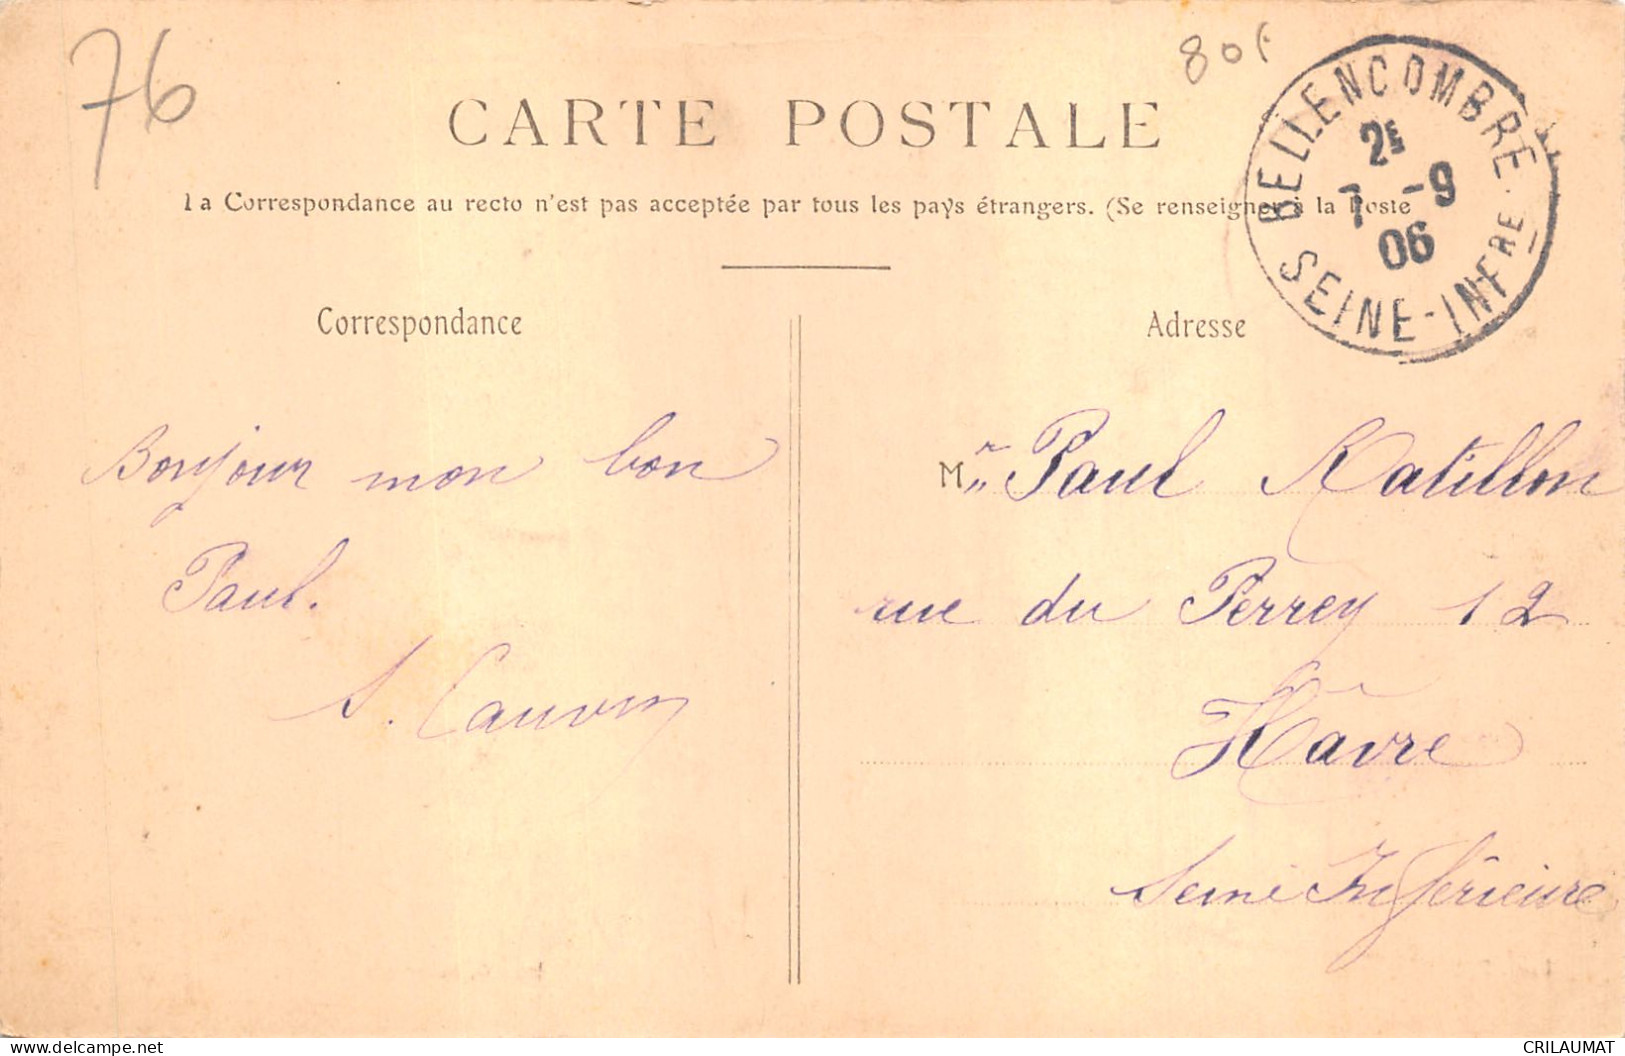 76
80f
CARTE POSTALE
La Correspondance au recto n'est pas acceptée par tous les pays étrangers. (Se renseigner à la Poste
BELLENCOMBRE
2E
7 -9
06
SEINE-INFRE
Correspondance
Adresse
Bonjour mon bon
Paul.
Mr Paul Ratillon
rue du Perrey 12
Hâvre
Seine Inférieure
CRILAUMAT